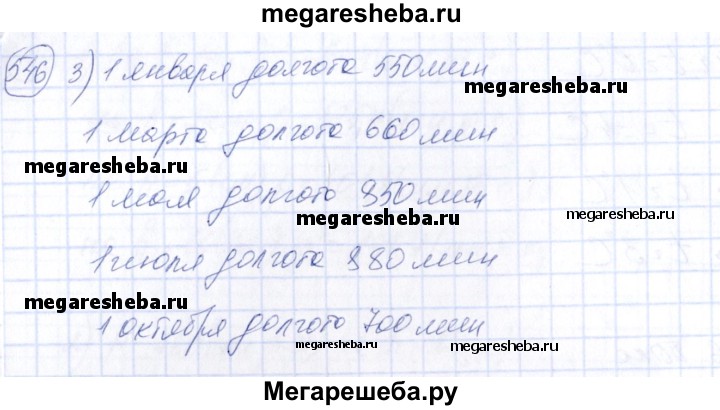 megaresheba.ru
546 3) 1 января долгота 550 мин
megaresheba.ru
1 марта долгота 660 мин
megaresheba.ru
1 мая долгота 850 мин
megaresheba.ru
megaresheba.ru
1 июля долгота 880 мин
megaresheba.ru
1 октября долгота 700 мин
megaresheba.ru
megaresheba.ru
Мегарешеба.ру